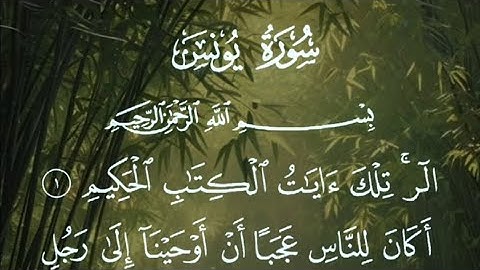 سُورَةُ يُونُسَ
بِسْمِ اللَّهِ الرَّحْمَٰنِ الرَّحِيمِ
الٓر ۚ تِلْكَ ءَايَـٰتُ ٱلْكِتَـٰبِ ٱلْحَكِيمِ ١
أَكَانَ لِلنَّاسِ عَجَبًا أَنْ أَوْحَيْنَآ إِلَىٰ رَجُلٍ